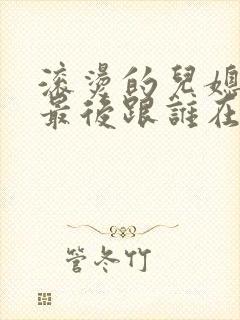 滚燙的兒媳
最後跟誰在
管冬竹